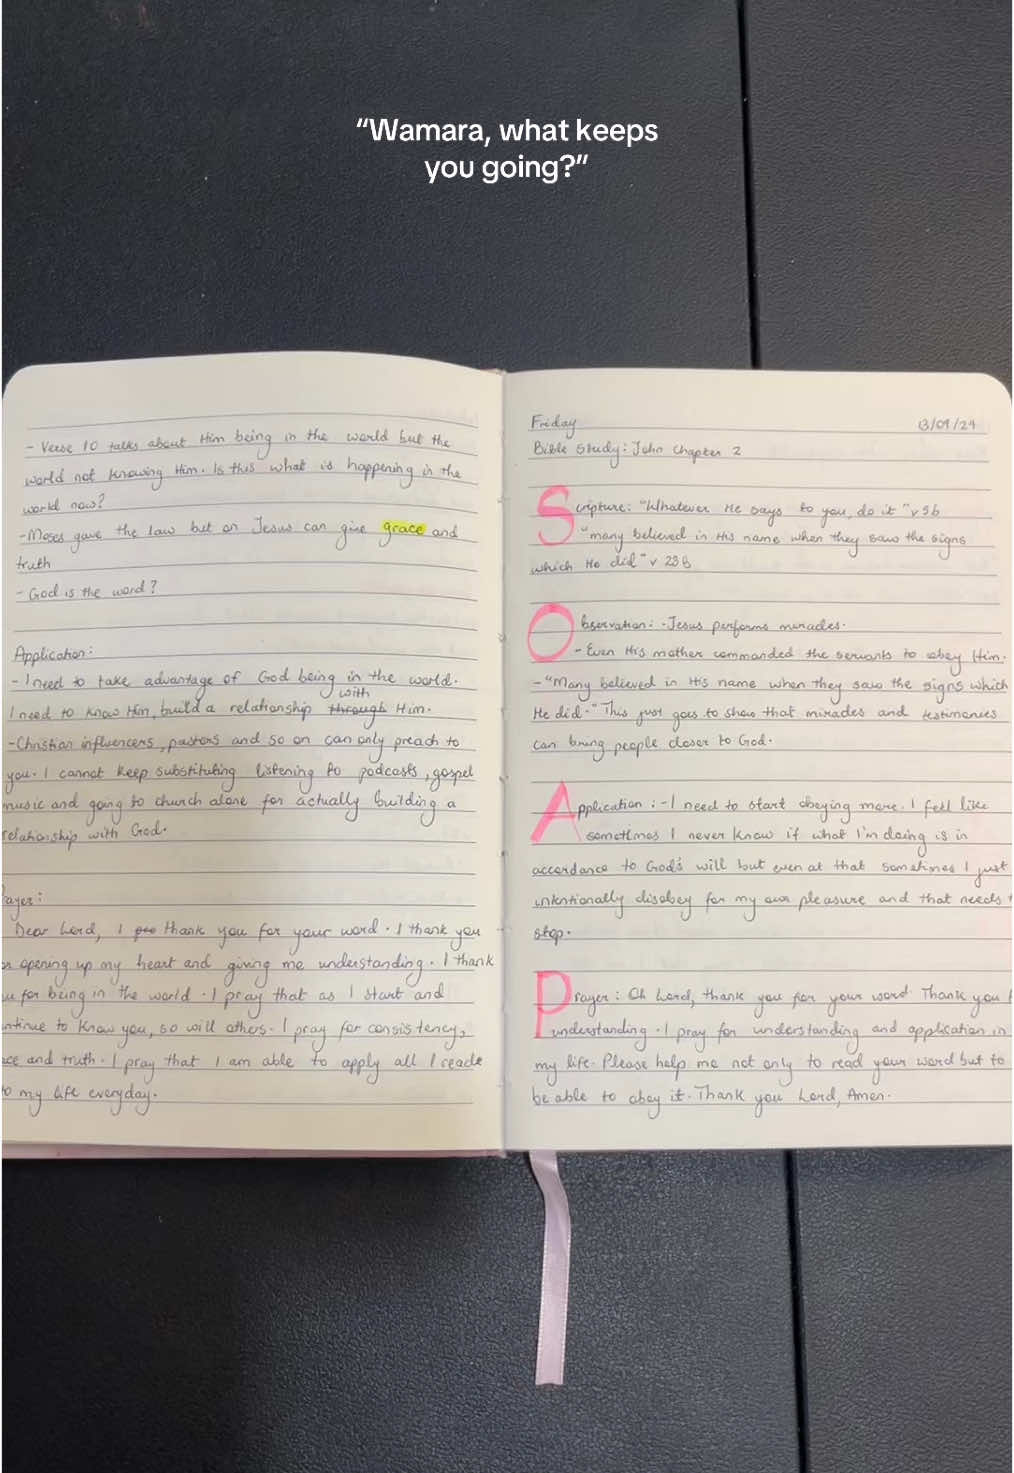 “Wamara, what keeps
you going?”
- Verse 10 talks about Him being in the world but the
world not knowing Him. Is this what is happening in the
world now?
-Moses gave the law but on Jesus can give grace and
truth
- God is the word?
Application:
- I need to take advantage of God being in the world.
with
I need to know Him, build a relationship through Him.
-Christian influencers, pastors and so on can only preach to
you. I cannot keep substituting listening to podcasts, gospel
music and going to church alone for actually building a
relationship with God.
ayer:
Dear Lord, I thank you for your word. I thank you
opening up my heart and giving me understanding. I thank
u for being in the world. I pray that as I start and
ntinue to know you, so will others. I pray for consistency,
ce and truth. I pray that I am able to apply all I reade
to my life everyday.
Friday 13/09/24
Bible Study: John Chapter 2
Scripture: "Whatever He says to you, do it" v5b
"many believed in His name when they saw the signs
which He did" v 23b
Observation: -Jesus performs miracles.
- Even His mother commanded the servants to obey Him.
- "Many believed in His name when they saw the signs which
He did." This just goes to show that miracles and testimonies
can bring people closer to God.
Application: - I need to start obeying more. I feel like
sometimes I never know if what I'm doing is in
accordance to God's will but even at that sometimes I just
intentionally disobey for my own pleasure and that needs t
stop.
Prayer: Oh Lord, thank you for your word. Thank you f
understanding. I pray for understanding and application in
my life. Please help me not only to read your word but to
be able to obey it. Thank you Lord, Amen.